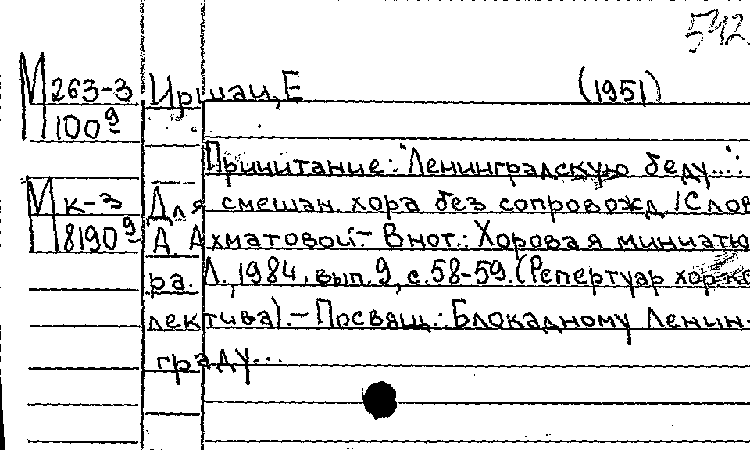 542
М 263-3 Иршаи, Е (1951)
100⁹
Причитание: "Ленинградскую беду...":
М к-3 Для смешан. хора без сопровожд. / Слова
8190⁹ А. Ахматовой. - В нот.: Хоровая миниатю-
ра. Л., 1984, вып. 9, с. 58-59. (Репертуар хор. ко-
лектива). - Посвящ.: Блокадному Ленин-
граду...